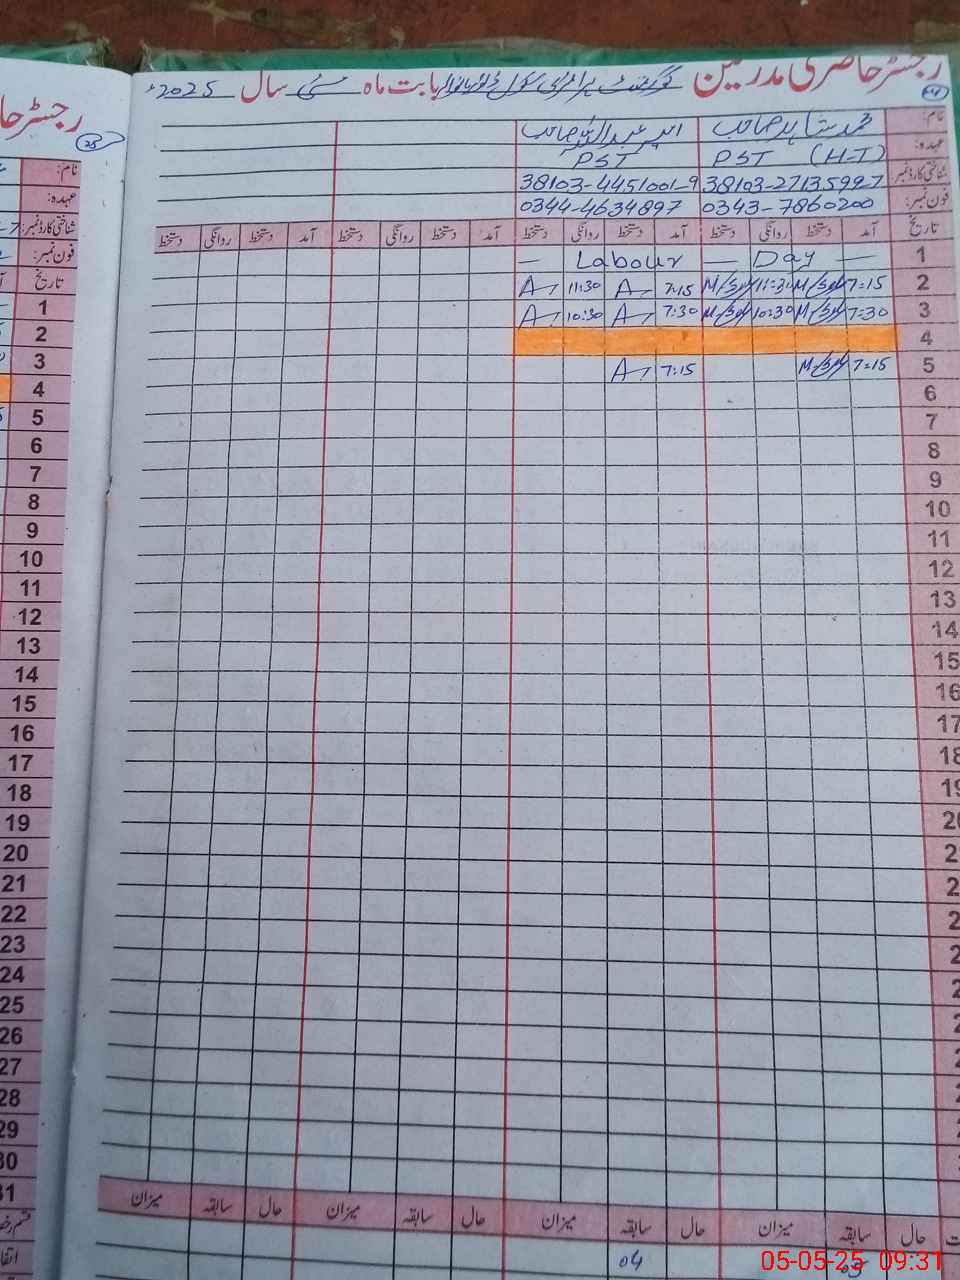 رجسٹر حاضری مدرسین گورنمنٹ پرائمری سکول بابت ماہ مئی سال 2025ء
نام: محمد شاہد صاحب امیر عبداللہ صاحب
عہدہ: PST (H-T) PST
شناختی کارڈ نمبر: 38103-2713599-7 38103-4451001-9
فون نمبر: 0343-7860200 0344-4634897
تاریخ آمد دستخط روانگی دستخط آمد دستخط روانگی دستخط آمد دستخط روانگی دستخط آمد دستخط روانگی دستخط
1 — Labour — Day —
2 7:15 11:30 7:15 A 11:30 A
3 7:30 10:30 7:30 A 10:30 A
4
5 7:15 7:15 A
6
7
8
9
10
11
12
13
14
15
16
17
18
19
20
2
2
2
2
2
2
2
2
2
حال سابقہ میزان حال سابقہ میزان حال سابقہ میزان حال سابقہ میزان
03 04
رجسٹر حا
25
نام:
عہدہ:
شناختی کارڈ نمبر:
فون نمبر:
تاریخ
1
2
3
4
5
6
7
8
9
10
11
12
13
14
15
16
17
18
19
20
21
22
23
24
25
26
27
28
29
30
31
05-05-25 09:31